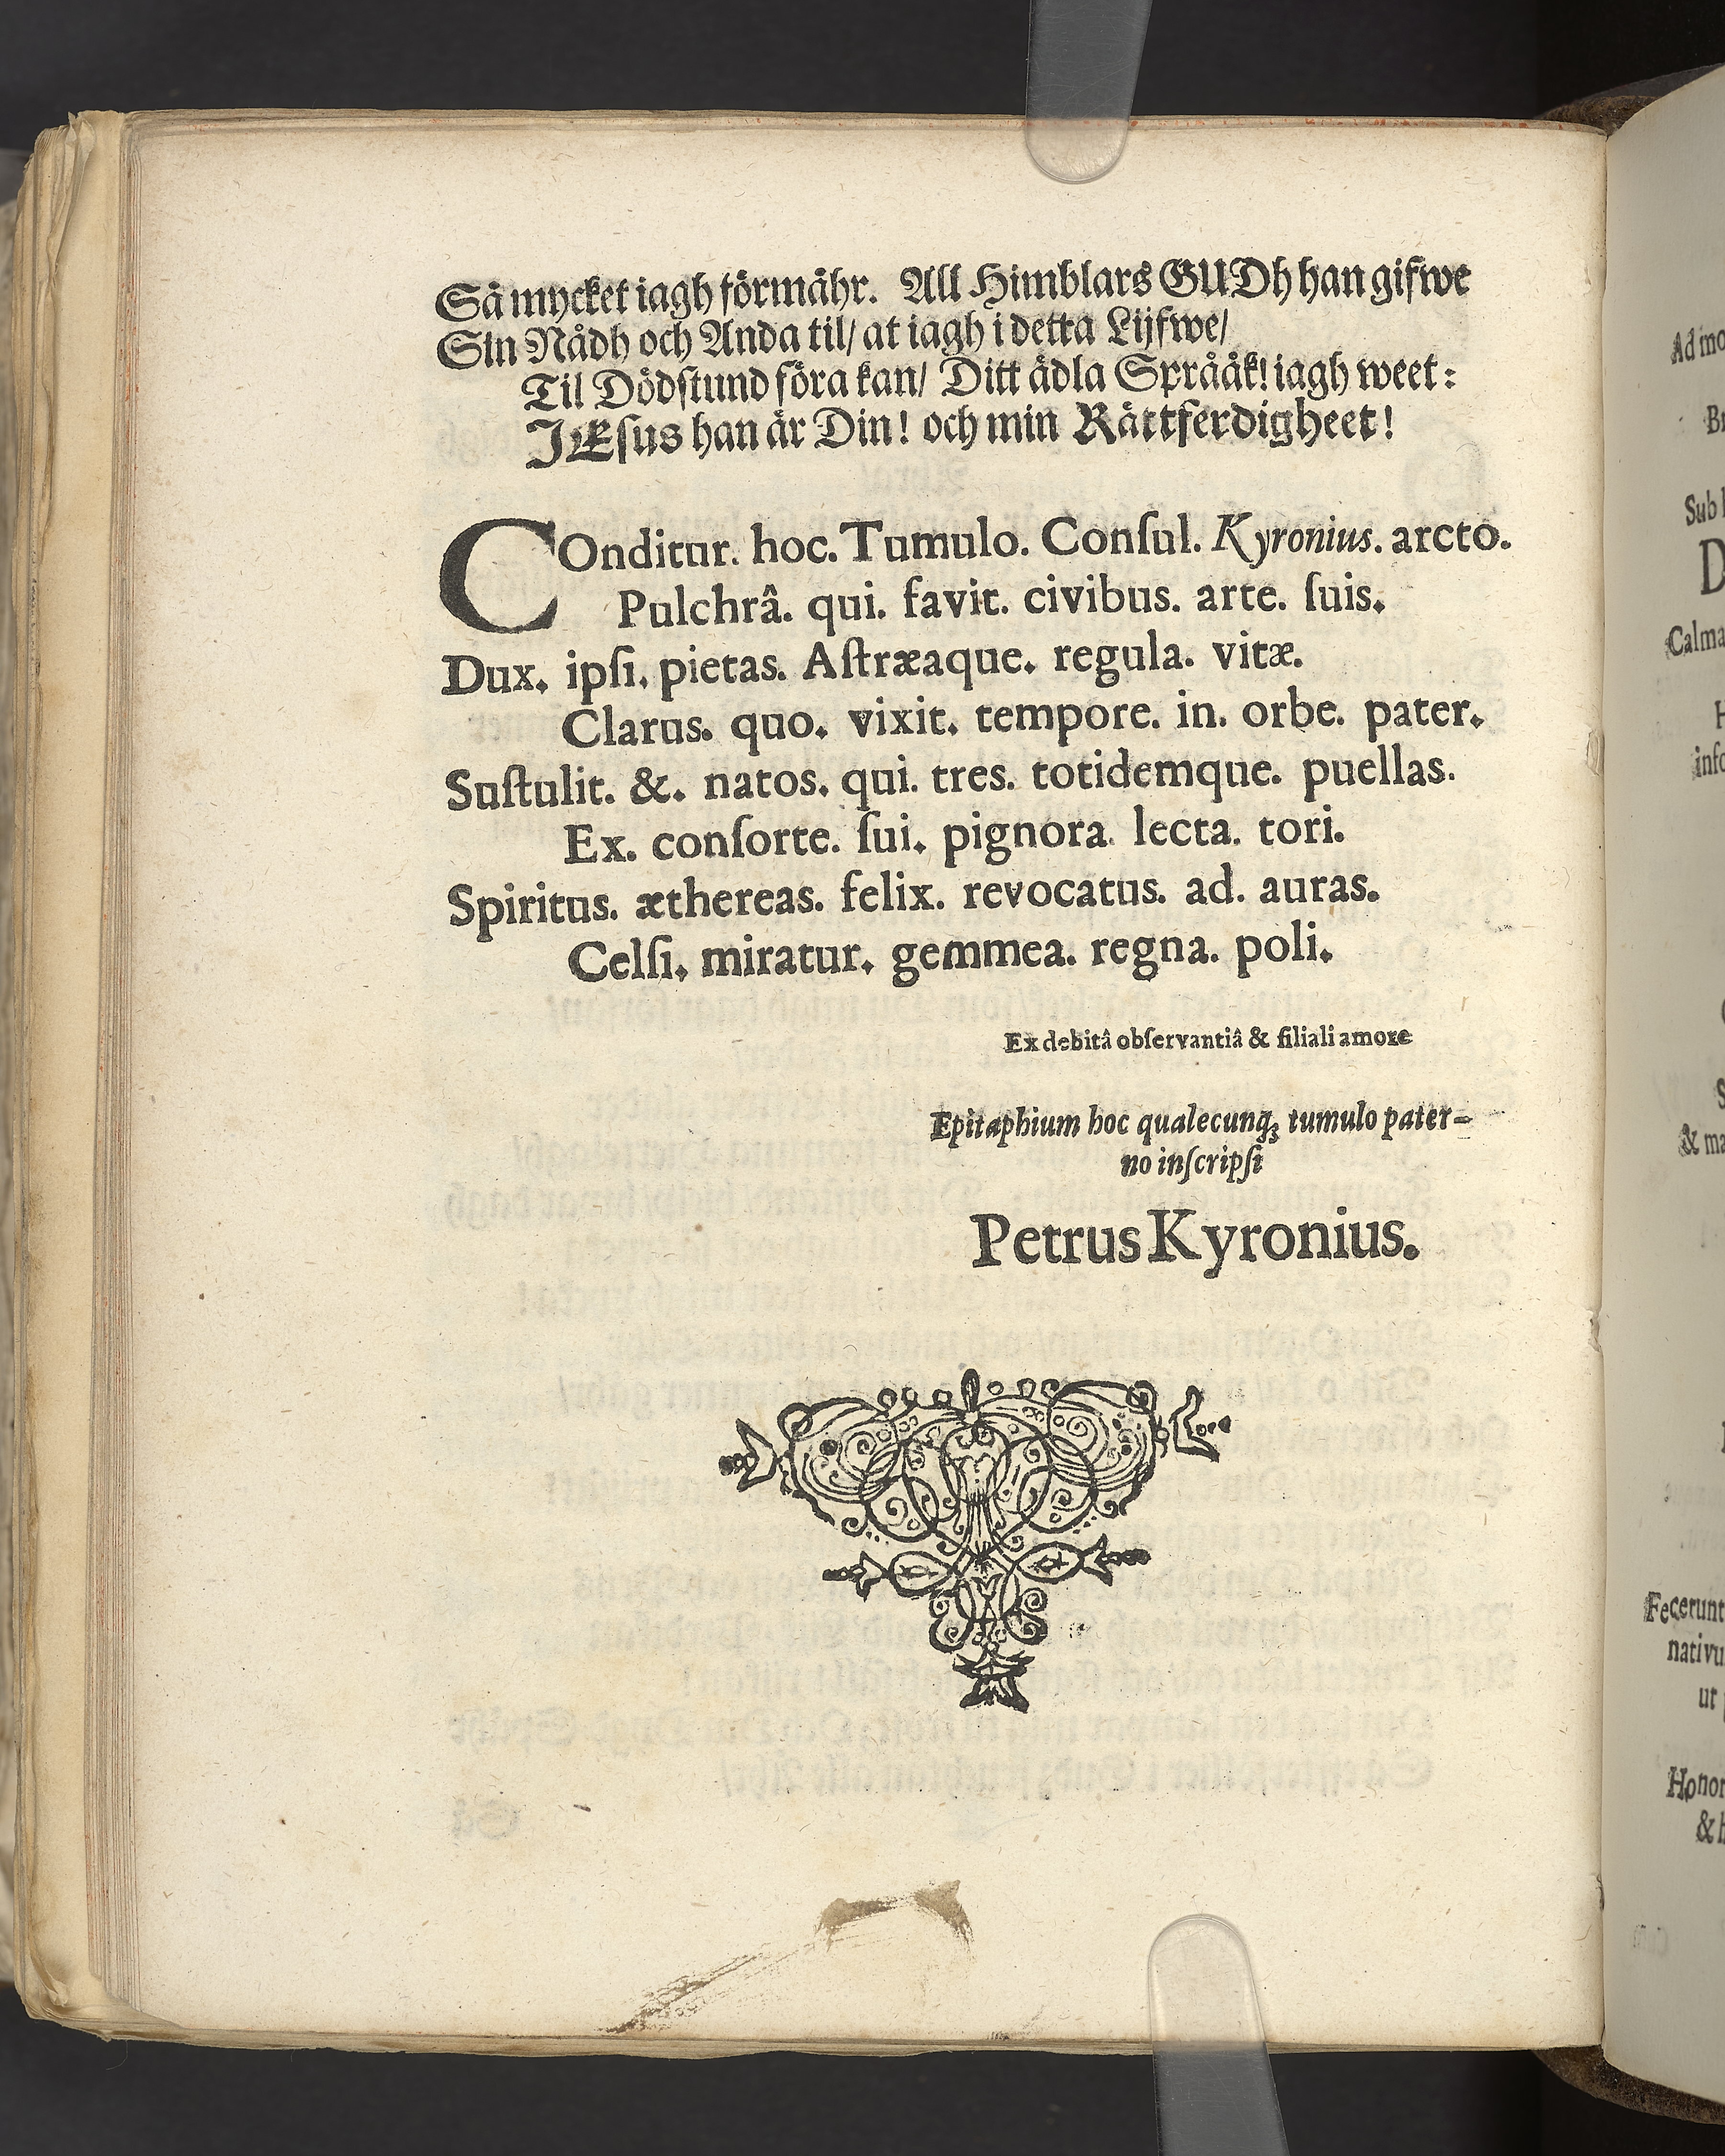 Så mycket iagh förmåhr. All Himblars GUDh han gifwe
Sin Nådh och Anda til/ at iagh i detta Lijfwe/
Til Dödſtund föra kan/ Ditt ädla Språåk! iagh weet:
JEſus han är Din! och min Rättferdigheet!
COnditur. hoc. Tumulo. Conſul. Kyronius. arcto.
Pulchrâ. qui. favit. civibus. arte. ſuis.
Dux. ipſi. pietas. Aſtræaque. regula. vitæ.
Clarus. quo. vixit. tempore. in. orbe. pater.
Suſtulit. &. natos. qui. tres. totidemque. puellas.
Ex. conſorte. ſui. pignora. lecta. tori.
Spiritus. æthereas. felix. revocatus. ad. auras.
Celſi. miratur. gemmea. regna. poli.
Ex debitâ obſervantiâ & filiali amore
Epitaphium hoc qualecunq; tumulo pater-
no inſcripſi
Petrus Kyronius.
Sub
Calma
Fecerunt
nativu
ut
Honor